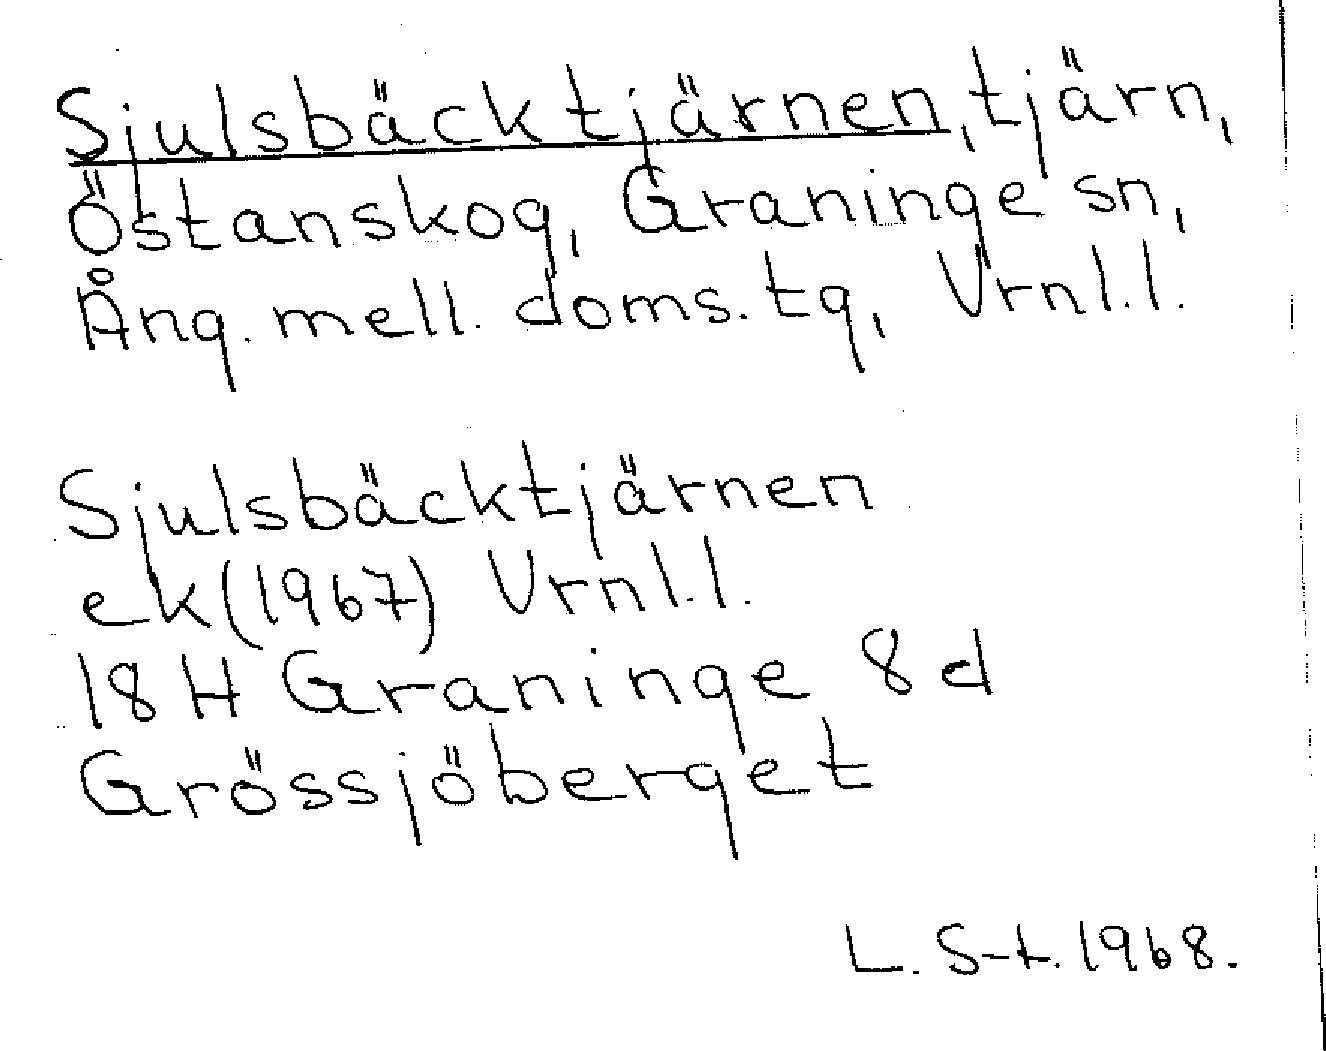 Sjulsbäcktjärnen, tjärn,
Östanskog, Graninge sn,
Ång. mell. doms. tg, Vrnl.l.
Sjulsbäcktjärnen
ek (1967) Vrnl.l.
18 H Graninge 8 d
Grössjöberget
L. S-t. 1968.